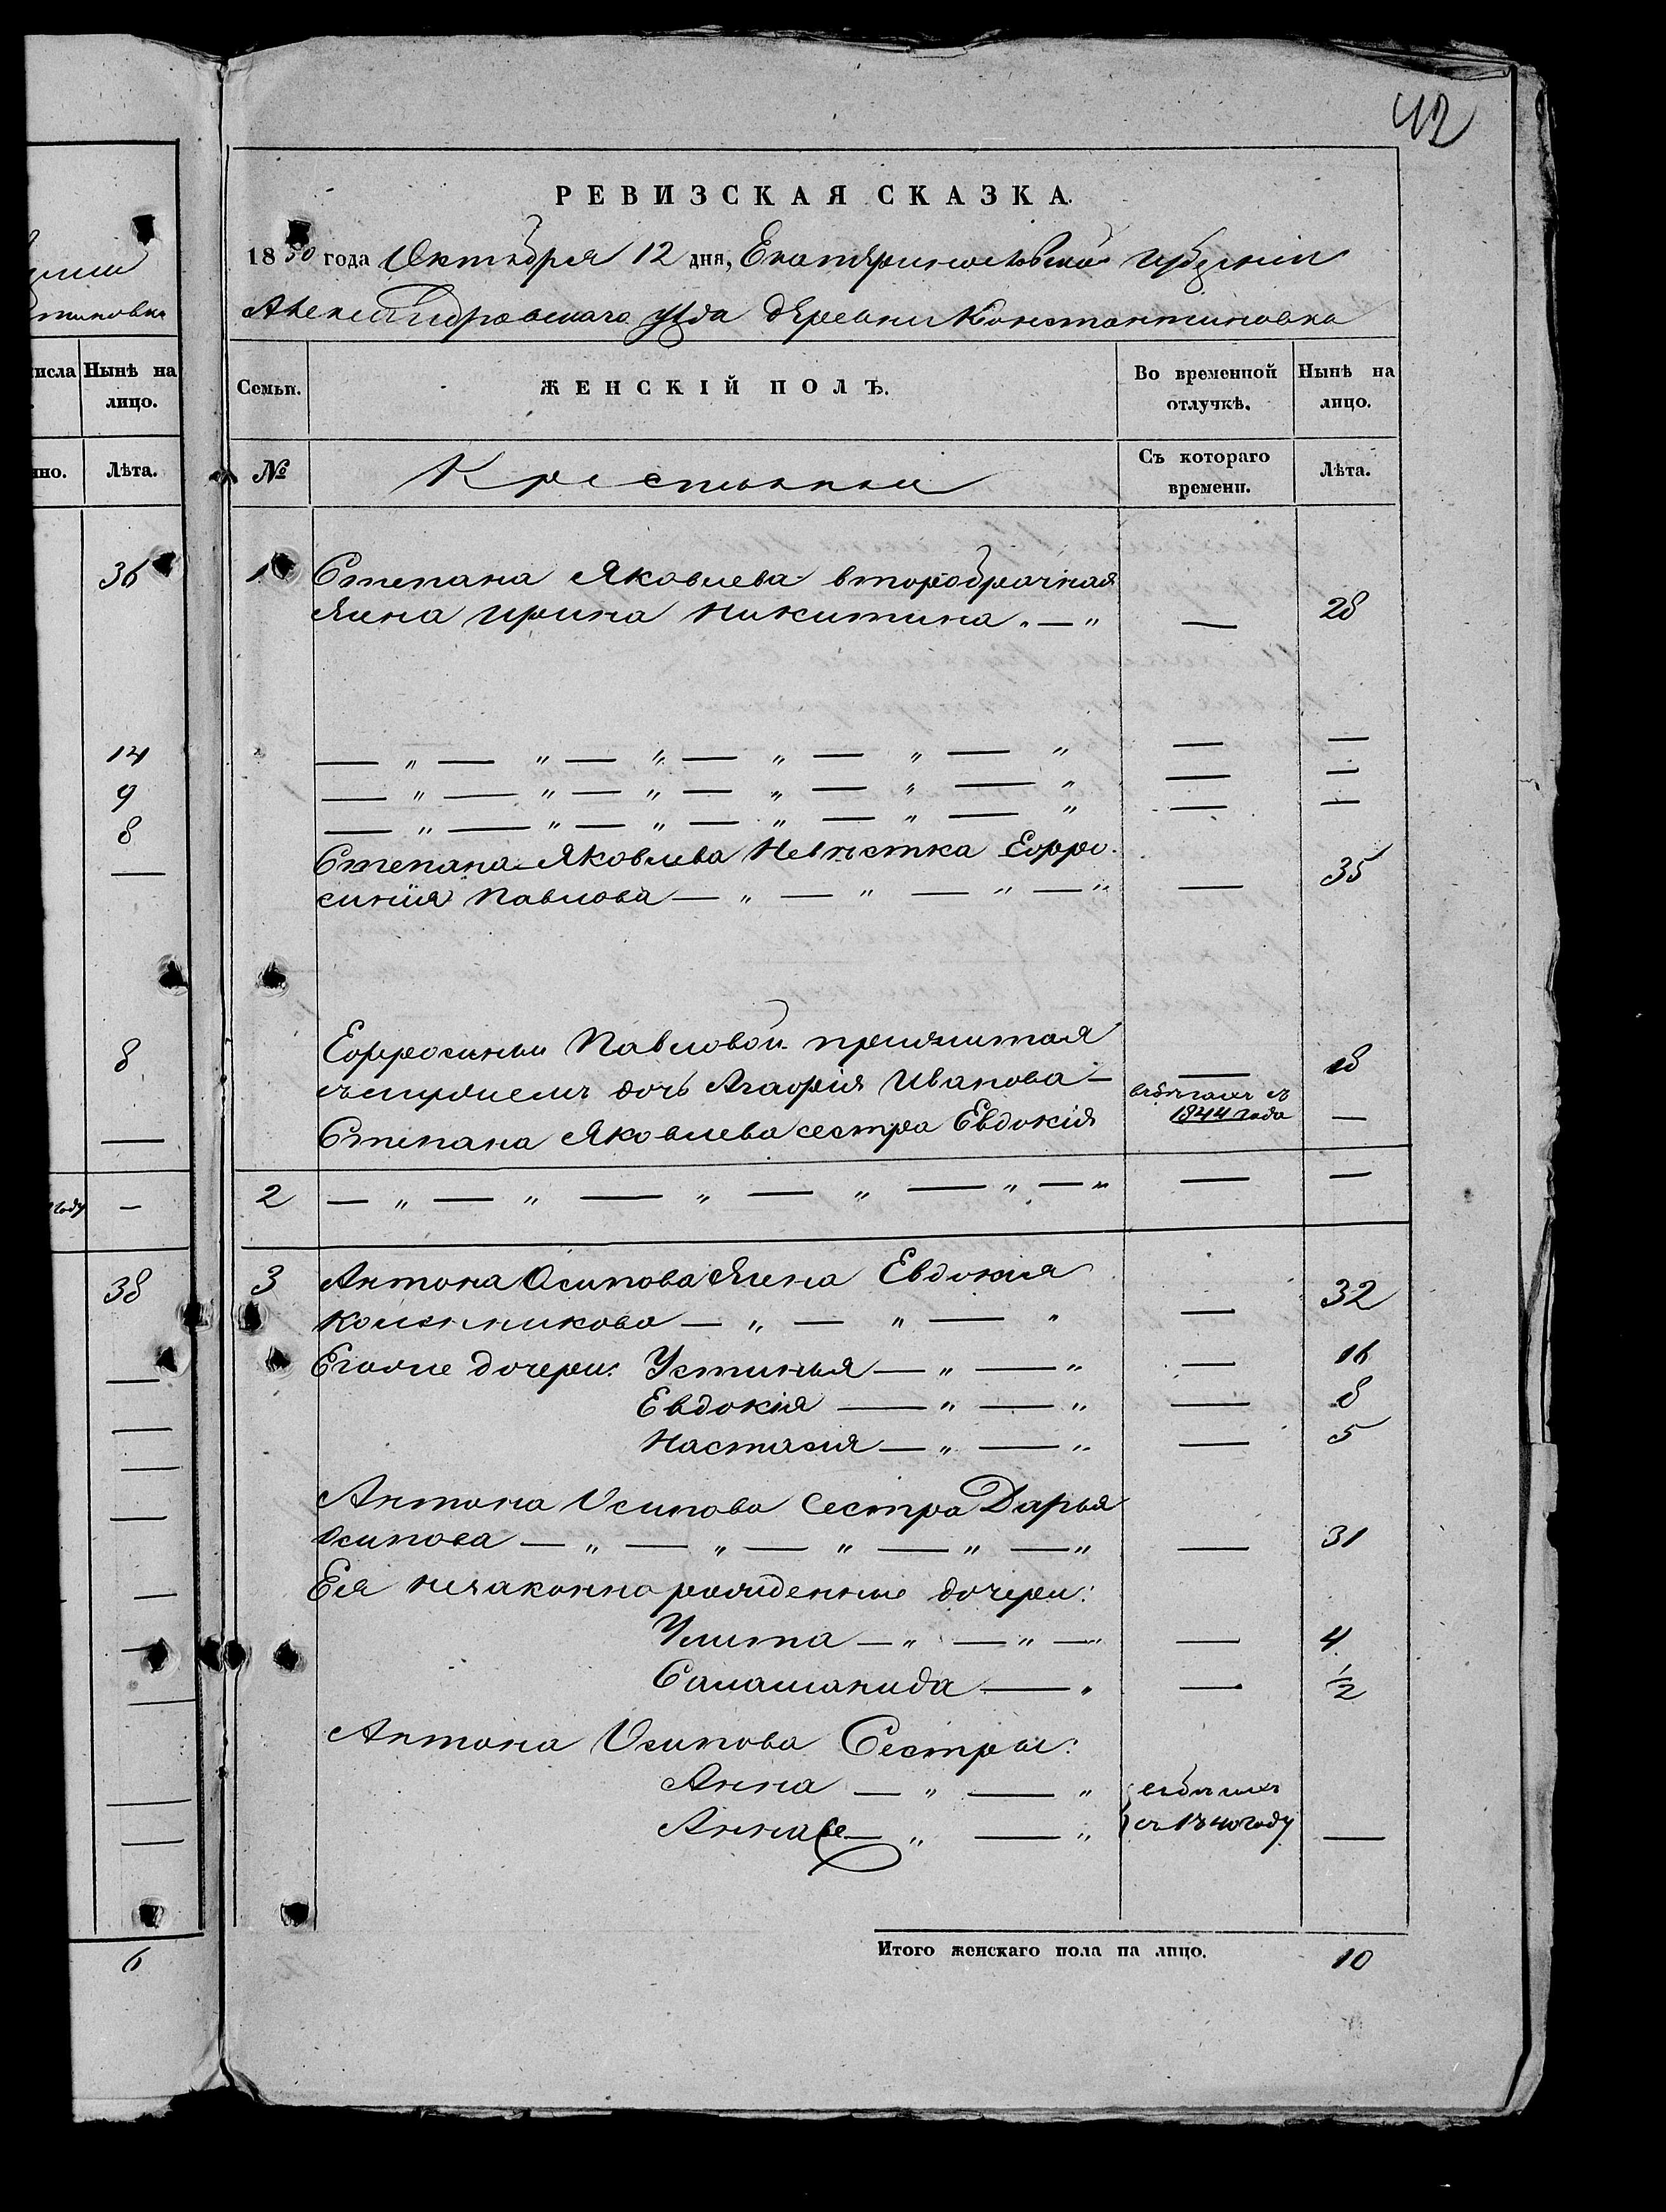 42
РЕВИЗСКАЯ СКАЗКА.
1850 года Октября 12 дня, Екатеринославской Губерніи
Александровскаго уезда деревни Константиновка
Нынѣ на лицо.
Лѣта.
Семьи.
ЖЕНСКІЙ ПОЛЪ.
Во временной отлучкѣ.
Нынѣ на лицо.
№
Крестьянки
Съ котораго времени.
Лѣта.
36
1 Степана Яковлева второбрачная
жена Ирина Никитина „ — „ — 28
14 — „ — „ — „ — „ — „ — „ — —
9 — „ — „ — „ — „ — „ — „ — —
8 — „ — „ — „ — „ — „ — „ — —
Степана Яковлева Невѣстка Ефро-
синия Павлова — „ — „ — „ — „ — 35
8 Ефросиньи Павловой прижитая
съ мужемъ дочь Агафія Иванова — — 18
Степана Яковлева сестра Евдокія въ бѣгахъ съ 1844 года —
году —
2 — „ — „ — „ — „ — „ — „ — —
38
3 Антона Осипова жена Евдокия
— „ — „ — „ — 32
Его же дочери: Устинья — „ — „ — 16
Евдокія — „ — „ — 8
Настасия — „ — „ — 5
Антона Осипова Сестра Дарья
Осипова — „ — „ — „ — „ — „ — 31
Ея незаконно рожденные дочери:
Улита — „ — „ — „ — 4
Саламанида — „ — ½
Антона Осипова Сестры:
Анна — „ — „ въ бѣгахъ
Анна же — „ — „ съ 1840 году —
6
Итого женскаго пола на лицо. 10